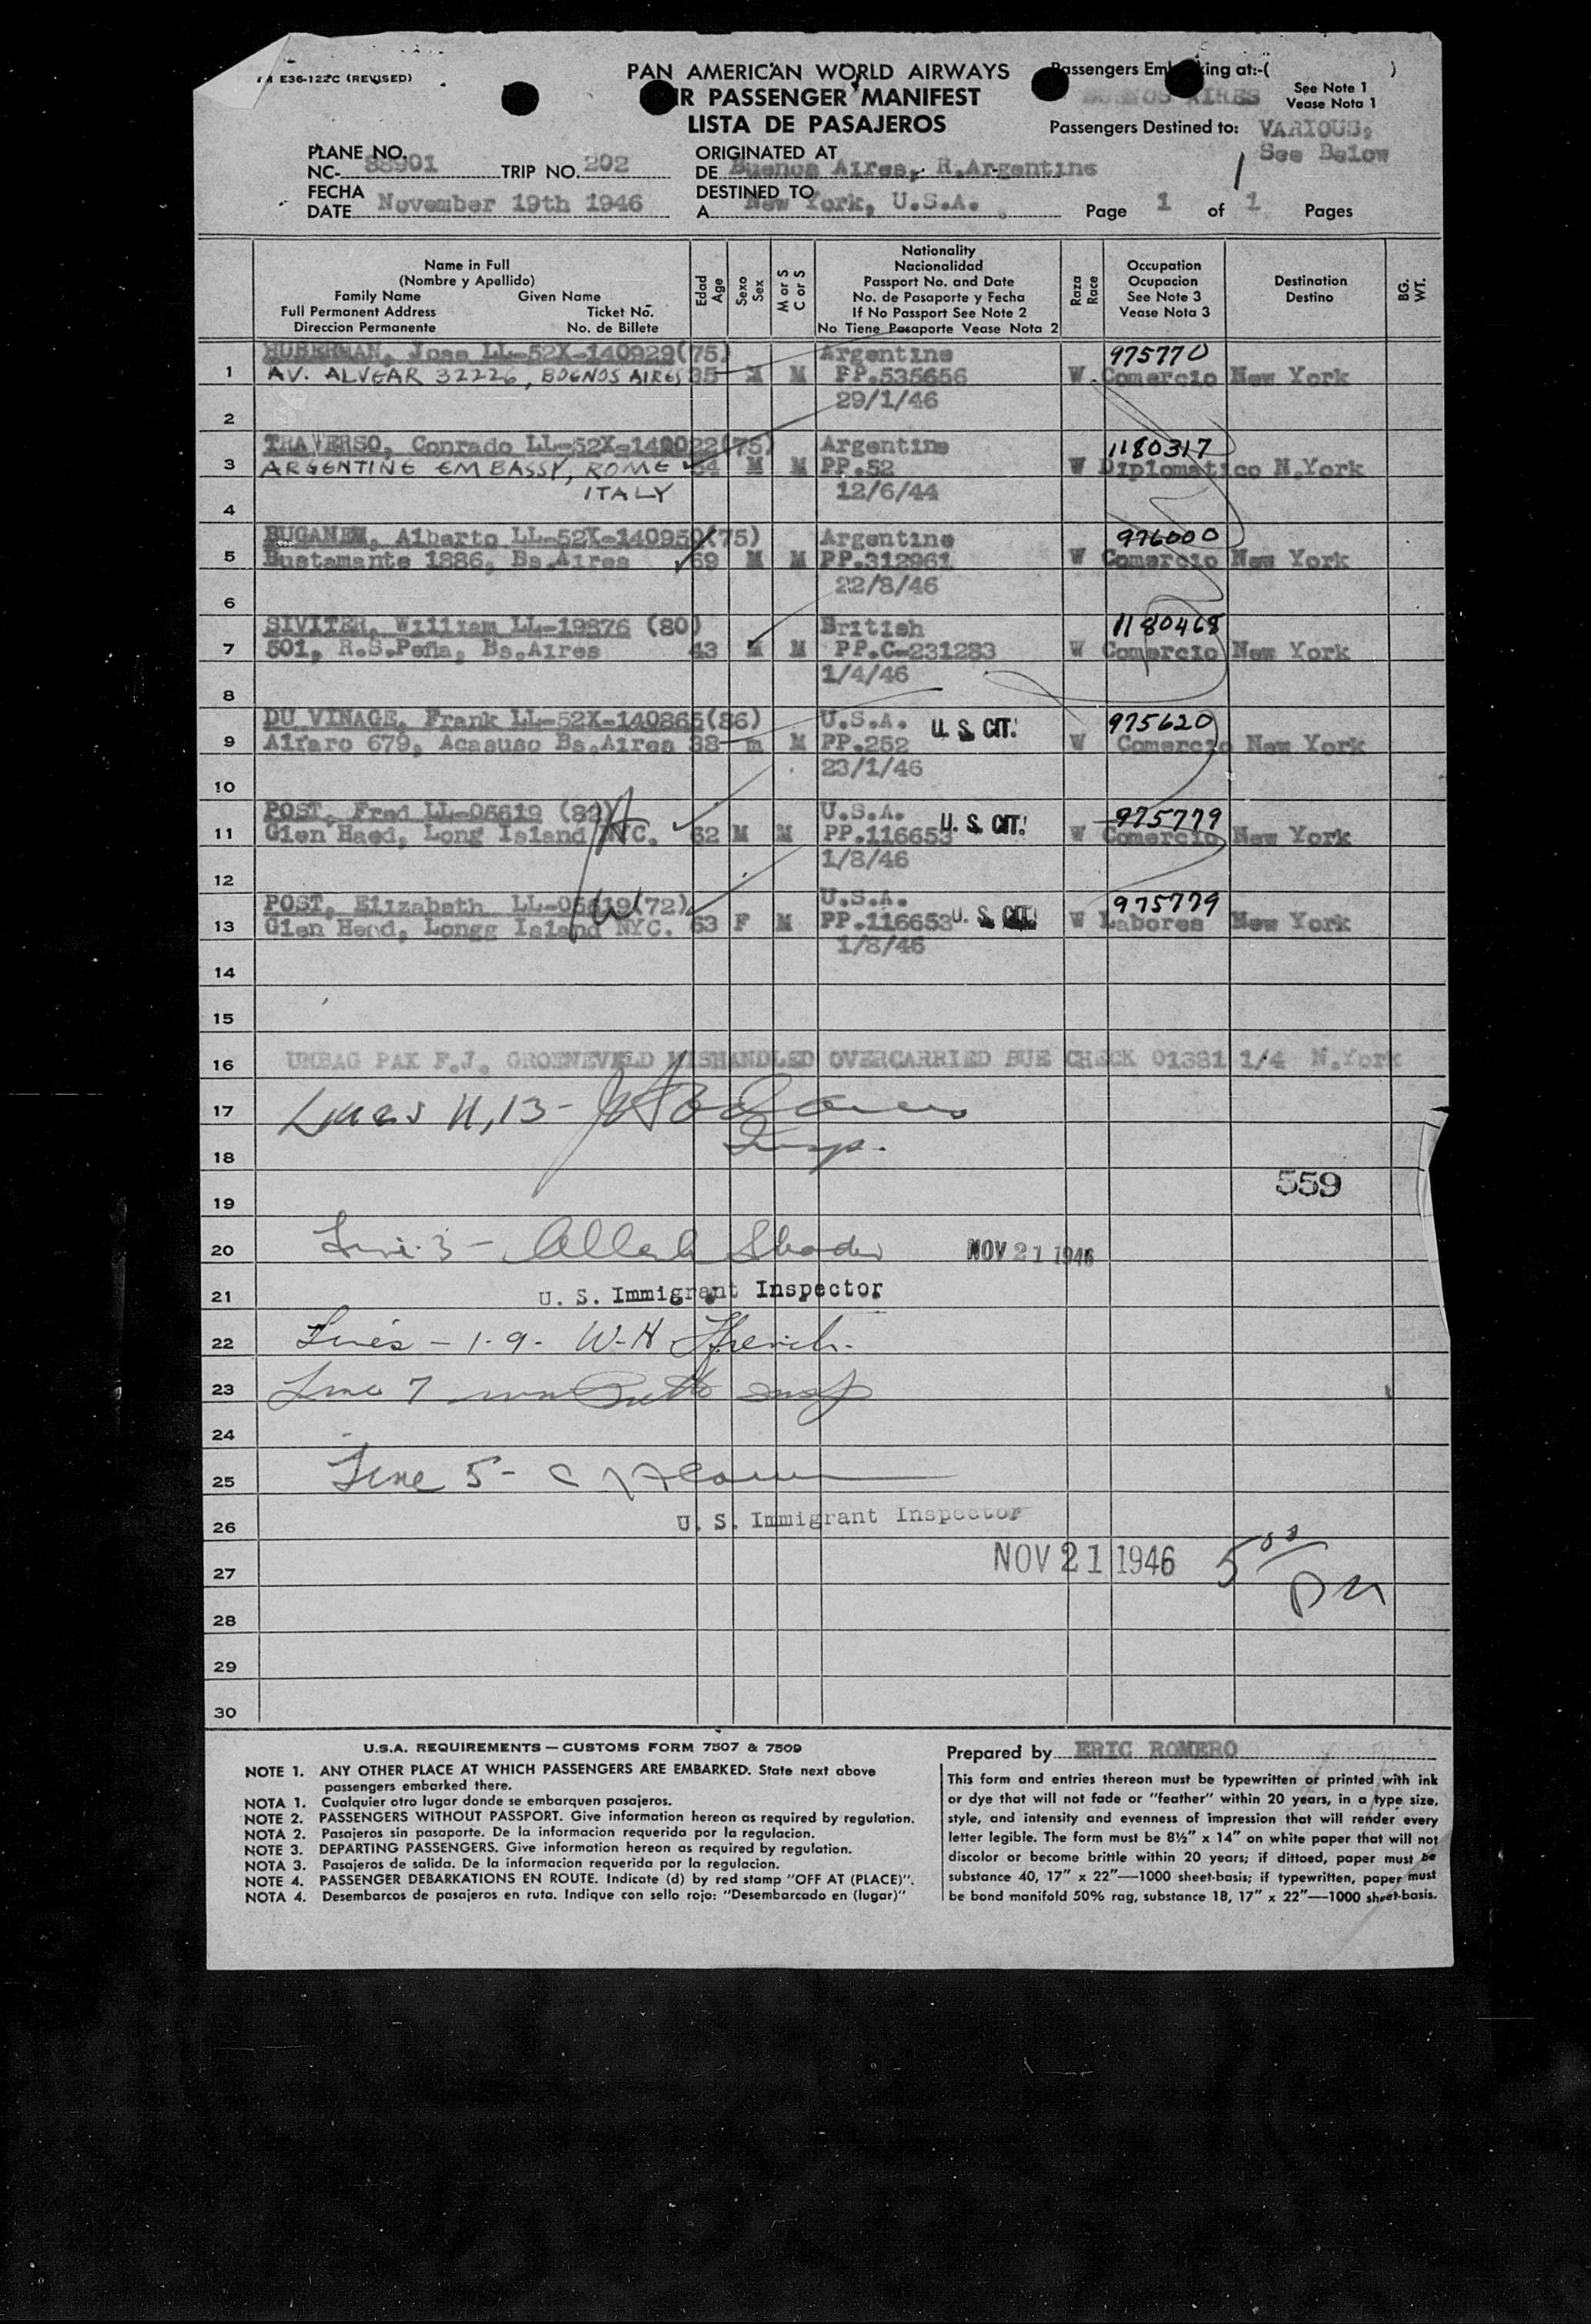 E36-122C (REVISED)
PAN AMERICAN WORLD AIRWAYS
PASSENGER MANIFEST
LISTA DE PASAJEROS
Passengers Embarking at:-( )
BUENOS AIRES
See Note 1
Vease Nota 1
Passengers Destined to: VARIOUS,
See Below
PLANE NO.
NC- 88901 TRIP NO. 202
FECHA
DATE November 19th 1946
ORIGINATED AT
DE Buenos Aires, R.Argentine
DESTINED TO
A New York, U.S.A.
Page 1 of 1 Pages
Name in Full
(Nombre y Apellido)
Family Name Given Name
Full Permanent Address Ticket No.
Direccion Permanente No. de Billete
Edad
Age
Sexo
Sex
M or S
C or S
Nationality
Nacionalidad
Passport No. and Date
No. de Pasaporte y Fecha
If No Passport See Note 2
No Tiene Pasaporte Vease Nota 2
Raza
Race
Occupation
Ocupacion
See Note 3
Vease Nota 3
Destination
Destino
BG.
WT.
HUBERMAN, Jose LL-52X-140929(75) Argentine 975770
1 AV. ALVEAR 32226, BOENOS AIRES 35 M M PP.535656 W Comercio New York
29/1/46
2
TRAVERSO, Conrado LL-52X-140022(75) Argentine 1180317
3 ARGENTINE EMBASSY, ROME 54 M M PP.52 W Diplomatico N.York
ITALY 12/6/44
4
BUGANEM, Alberto LL-52X-140950(75) Argentine 976000
5 Bustamante 1886, Bs.Aires 69 M M PP.312961 W Comercio New York
22/8/46
6
SIVITER, William LL-19876 (80) British 1180468
7 501, R.S.Peña, Bs.Aires 43 M M PP.C-231283 W Comercio New York
1/4/46
8
DU VINAGE, Frank LL-52X-140865(86) U.S.A. U. S. CIT. 975620
9 Alfaro 679, Acasuso Bs.Aires 38 m M PP.252 W Comercio New York
23/1/46
10
POST, Fred LL-05619 (82) U.S.A. U. S. CIT. 975779
11 Glen Haed, Long Island NYC. 62 M M PP.116653 W Comercio New York
1/8/46
12
POST, Elizabeth LL-05619(72) U.S.A. U. S. CIT. 975779
13 Glen Head, Longg Island NYC. 63 F M PP.116653 W Labores New York
1/8/46
14
15
16 UNBAG PAX F.J. GROENEVELD MISHANDLED OVERCARRIED BUE CHECK 01381 1/4 N.York
17 Lines 11, 13 -
Insp.
18
559
19
20 Line 3 - NOV 21 1946
21 U. S. Immigrant Inspector
22 Lines - 1-9- W-H French
23 Line 7 insp
24
25 Line 5 -
26 U. S. Immigrant Inspector
27 NOV 21 1946 5 00
PM
28
29
30
U.S.A. REQUIREMENTS — CUSTOMS FORM 7507 & 7509
NOTE 1. ANY OTHER PLACE AT WHICH PASSENGERS ARE EMBARKED. State next above
passengers embarked there.
NOTA 1. Cualquier otro lugar donde se embarquen pasajeros.
NOTE 2. PASSENGERS WITHOUT PASSPORT. Give information hereon as required by regulation.
NOTA 2. Pasajeros sin pasaporte. De la informacion requerida por la regulacion.
NOTE 3. DEPARTING PASSENGERS. Give information hereon as required by regulation.
NOTA 3. Pasajeros de salida. De la informacion requerida por la regulacion.
NOTE 4. PASSENGER DEBARKATIONS EN ROUTE. Indicate (d) by red stamp "OFF AT (PLACE)".
NOTA 4. Desembarcos de pasajeros en ruta. Indique con sello rojo: "Desembarcado en (lugar)"
Prepared by ERIC ROMERO
This form and entries thereon must be typewritten or printed with ink
or dye that will not fade or "feather" within 20 years, in a type size,
style, and intensity and evenness of impression that will render every
letter legible. The form must be 8½" x 14" on white paper that will not
discolor or become brittle within 20 years; if dittoed, paper must be
substance 40, 17" x 22"—1000 sheet-basis; if typewritten, paper must
be bond manifold 50% rag, substance 18, 17" x 22"—1000 sheet-basis.